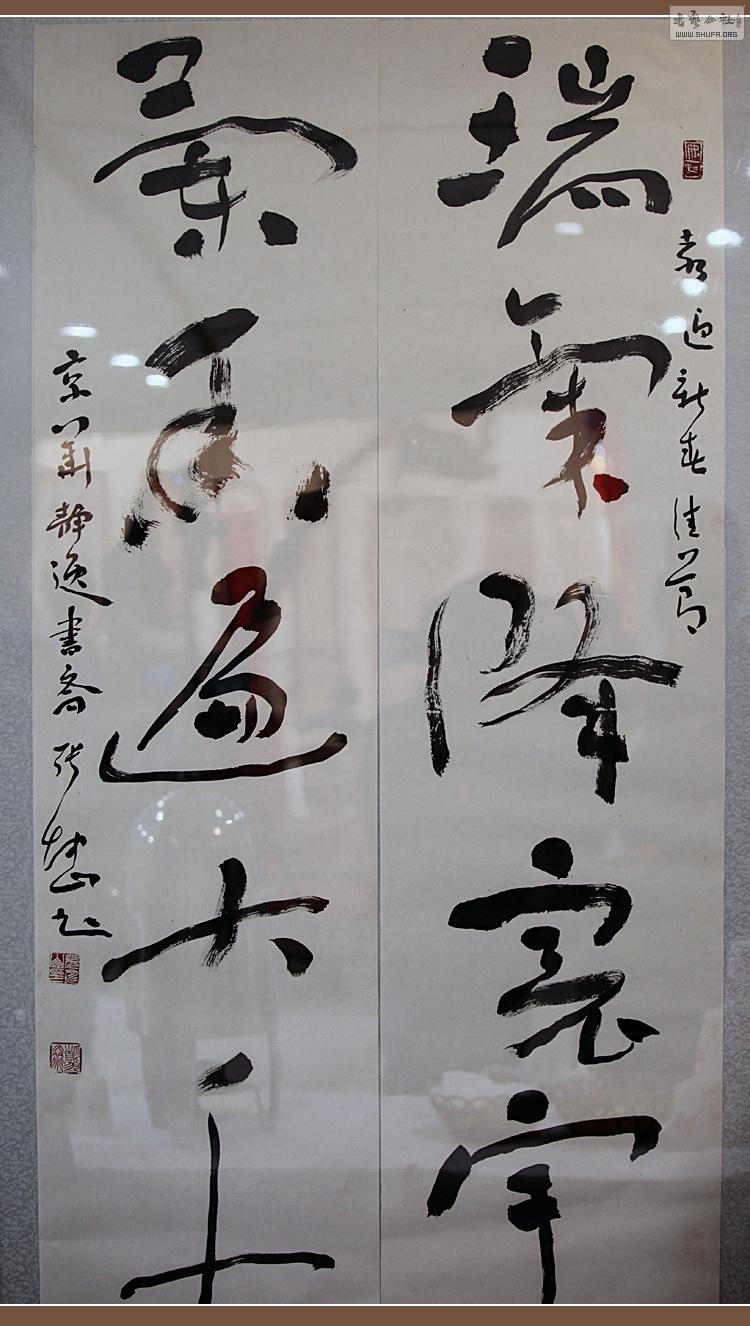 书艺公社
WWW.SHUFA.ORG
喜迎新春佳节
瑞气降寰宇
兰香遍大千
京华静逸书斋张